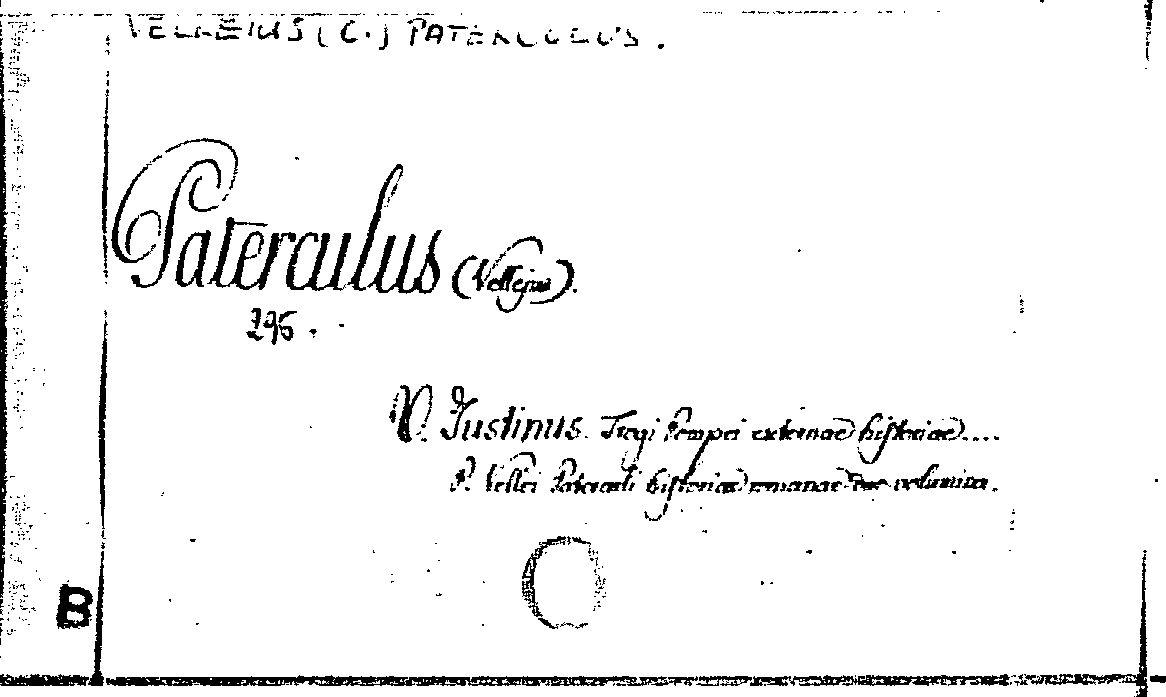 VELLEIUS (C.) PATERCULUS.
Paterculus (Vellejus).
296.
V. Justinus. Trogi Pompei externae historiae....
P. Vellei Paterculi historiae romanae duo volumina.
B